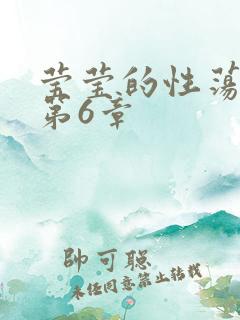 莹莹的性荡
第6章
帅可聪
未经同意禁止转载